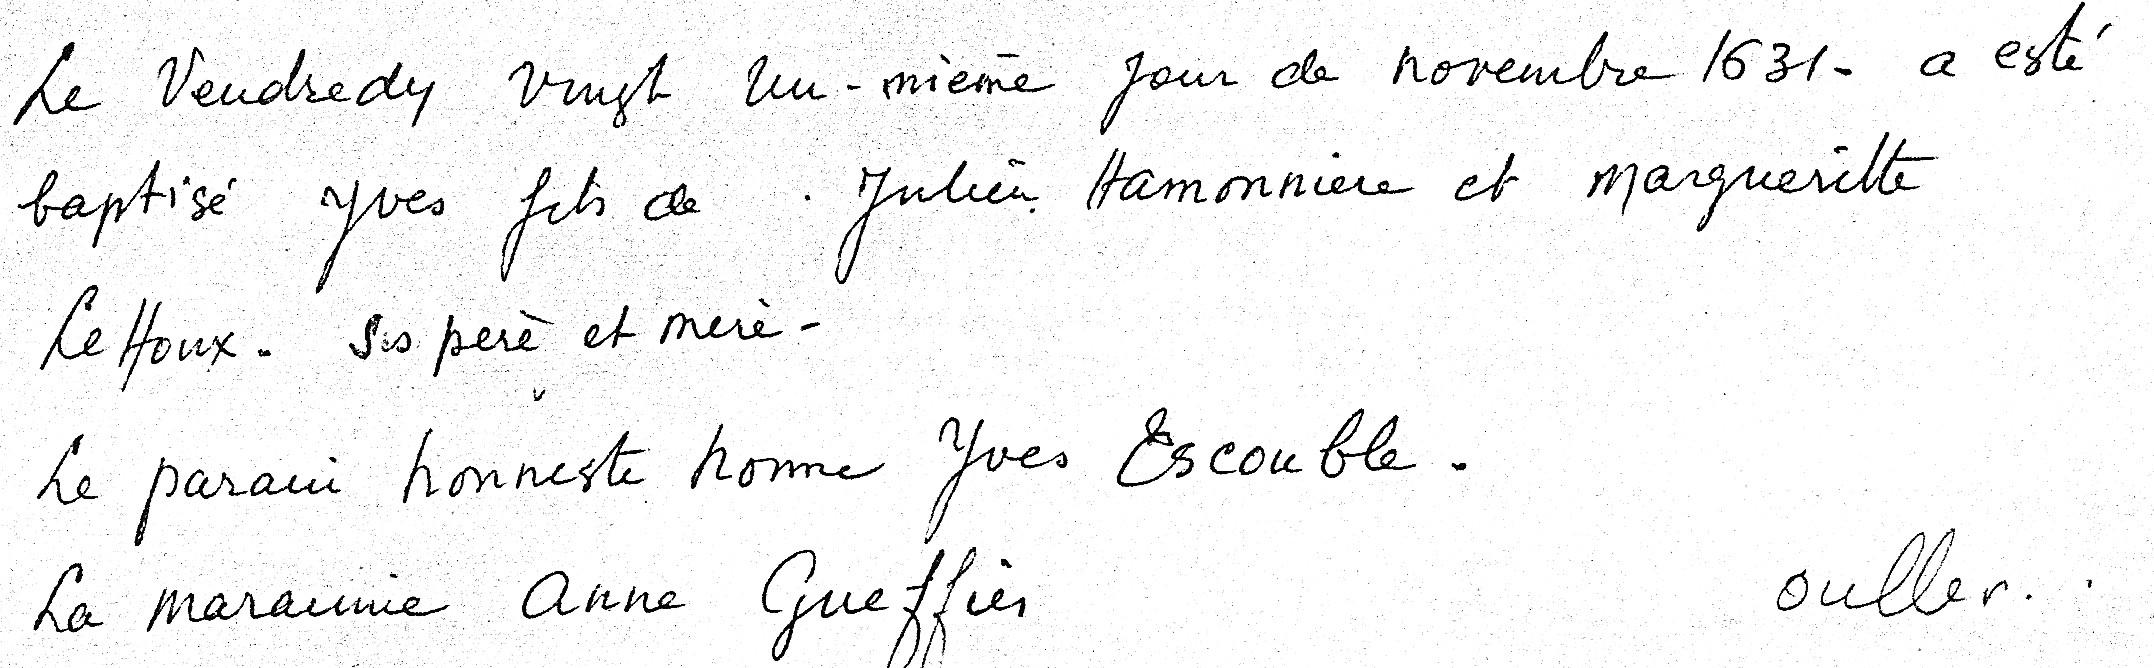 Le Vendredy vingt un-mieme jour de novembre 1631. a esté
baptisé Yves fils de Julien Hamonniere et Margueritte
Le Houx. Ses perè et merè -
Le parain honneste homme Yves Escouble.
La maraimie Anne Gueffier ouller.